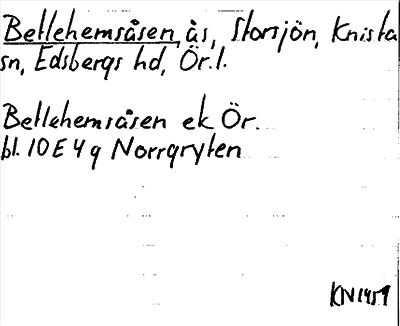 Betlehemsåsen, ås, Storsjön, Knista
sn, Edsbergs hd, Ör. l.
Betlehemsåsen ek Ör.
bl. 10 E 4 g Norrgryten